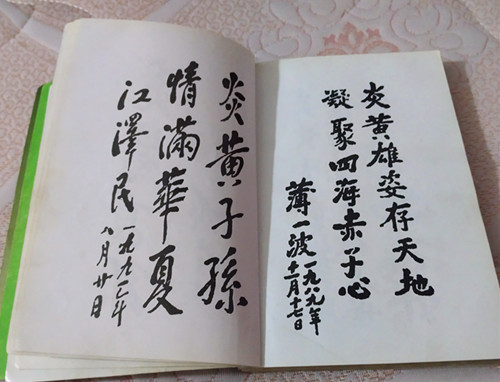 炎黄子孫
情滿華夏
江澤民 一九九一年
八月廿日
炎黄雄姿存天地
凝聚四海赤子心
薄一波 一九八九年
十一月十七日